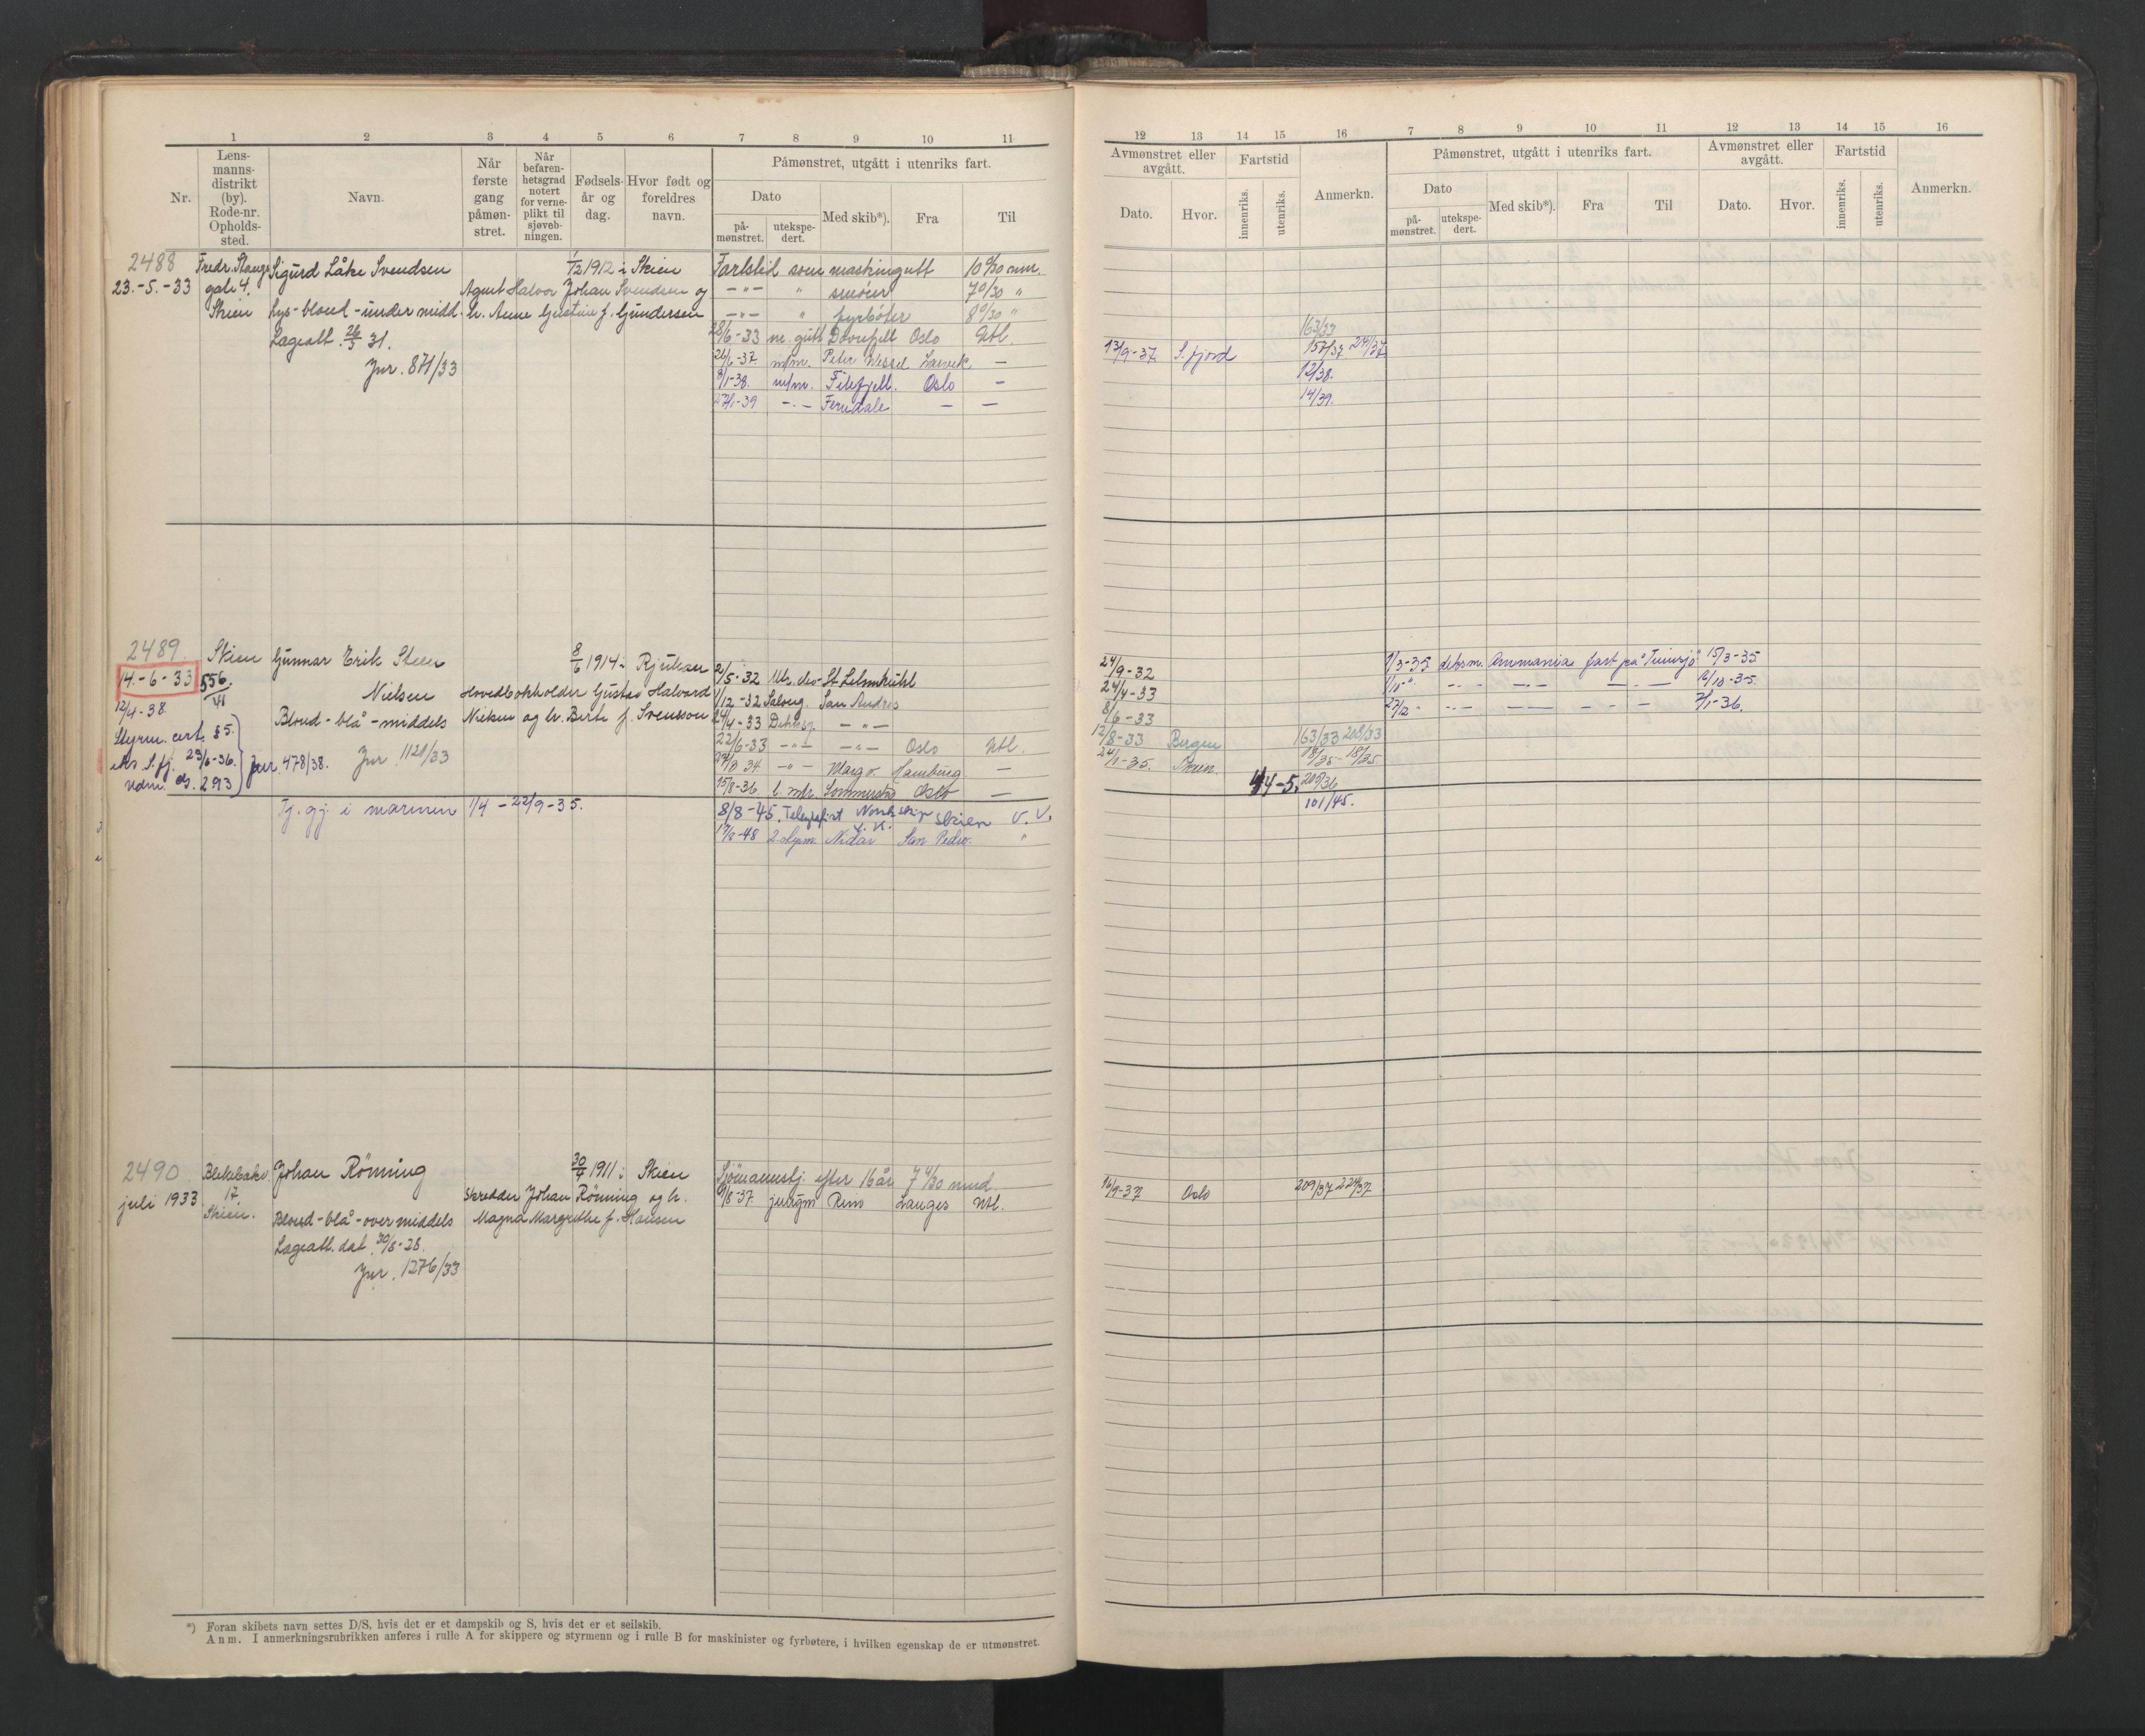 1 2 3 4 5 6 7 8 9 10 11
Nr.
Lens-
manns-
distrikt
(by).
Rode-nr.
Opholds-
sted.
Navn.
Når
første
gang
påmøn-
stret.
Når
befaren-
hetsgrad
notert
for verne-
plikt til
sjøveb-
ningen.
Fødsels-
år og
dag.
Hvor født og
foreldres
navn.
Påmønstret, utgått i utenriks fart.
Dato
på-
mønstret.
utekspe-
dert.
Med skib*).
Fra
Til
2488 Fredr. Stangs Sigurd Låke Svendsen 1/12 1912 i Skien Fartstid som maskingutt 10 0/30 mnd.
23.-5.-33 gate 4. Agent Halvor Johan Svendsen og —"— " smører 7 0/30 "
Skien Lys-blond-under midd. h. Anne Gustine f. Gundersen —"— " fyrbøter 8 0/30 "
Lægeatt. 26/3 31. 28/6-33 m. gutt Dovrefjell Oslo Utl.
Jnr. 871/33 26/6-37 m/m. Peter Wessel Larvik —
8/1-38. m/m. Filefjell. Oslo —
27/1-39 —.— Ferndale — —
2489. Skien Gunnar Erik Steen 8/6 1914 i Rjukan
14.-6-33 556/41 Nielsen Hovedbokholder Gustav Halvard 2/5-32
12/4-38. Blond-blå-middels Nielsen og h. Berte f. Svensson 1/12-32 Salong. San Andres
Styrm. cert. § 5. 24/4-33 —"—
S. fj. 23/6-36. Jnr. 478/38. Jnr. 1120/33 22/6-33 —"— —"— Oslo Utl.
293 34 —"— Margo. Hamburg. —
15/8-36. l. mtr. Sommerstad Oslo —
Tj. gj. i marinen 1/4 - 22/9-35. 8/8-45. Telegrafist Norsk skip Skien U. V.
17/3-48 2. styrm. Nidar San Pedro. "
2490 Johan Rönning 30/4 1911 i Skien Sjömannstj. efter 16 år 7 4/30 mnd.
juli 1933 17 Skredder Johan Rönning og h. 9/8-37. jungm Rein Langes Utl.
Skien. Blond-blå-over middels Magna Margrethe f. Hansen
Lægeatt. dat. 30/8-28.
Jnr. 1276/33
*) Foran skibets navn settes D/S, hvis det er et dampskib og S, hvis det er et seilskib.
Anm. I anmerkningsrubrikken anføres i rulle A for skippere og styrmenn og i rulle B for maskinister og fyrbøtere, i hvilken egenskap de er utmønstret.
12 13 14 15 16 7 8 9 10 11 12 13 14 15 16
Avmønstret eller
avgått.
Dato.
Hvor.
Fartstid
innenriks.
utenriks.
Anmerkn.
Påmønstret, utgått i utenriks fart.
Dato
på-
mønstret.
utekspe-
dert.
Med skib*).
Fra
Til
Avmønstret eller
avgått.
Dato.
Hvor.
Fartstid
innenriks.
utenriks.
Anmerkn.
163/33
13/9-37. S. fjord 157/37 214/37
12/38.
14/39.
24/9-32 1/3-35 Ammania fart på 15/3-35.
24/4-33 1/10-" —.— —.— —.— 16/10-35.
8/6-33 27/12 " —.— —— — — — 7/1-36.
12/8-33 Bergen 163/33 208/33
24/1-35. 18/35 18/35
4-5. 209/36
101/45.
16/9-37 Oslo 209/37 224/37